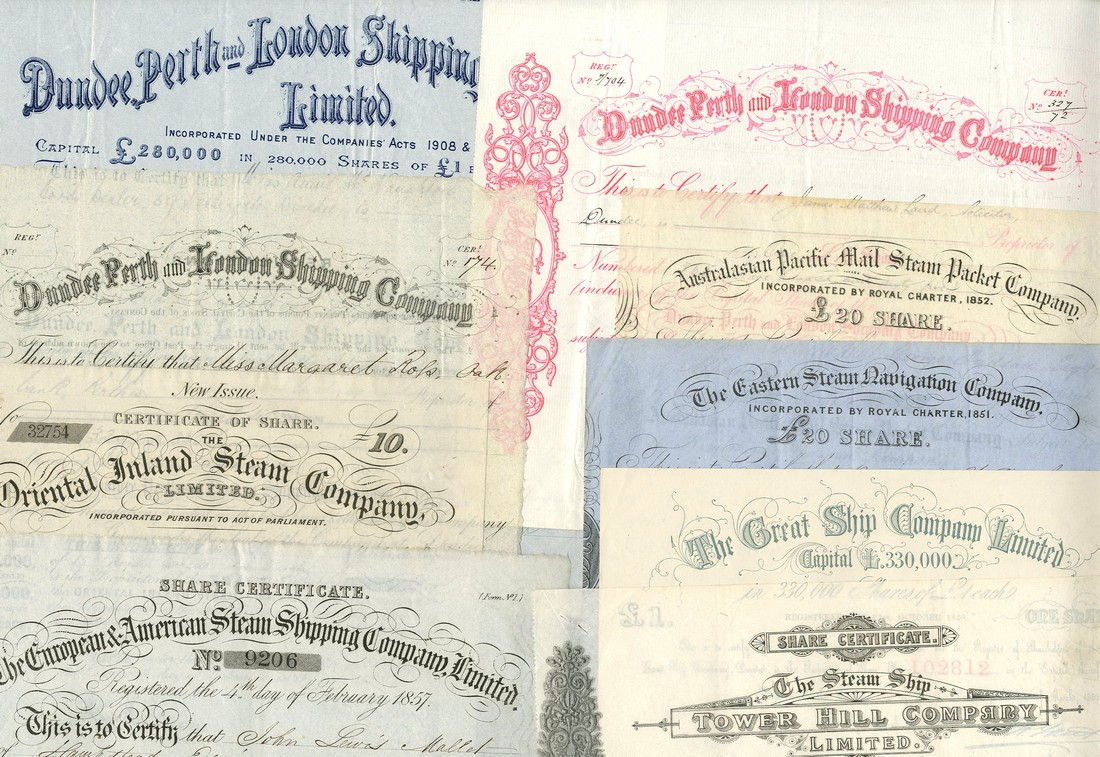 Dundee, Perth and London Shipping
Limited.
INCORPORATED UNDER THE COMPANIES' ACTS 1908 &
CAPITAL £280,000 IN 280,000 SHARES OF £1
This is to Certify that
REGT.
No 7/704
CERT.
No 327/72
Dundee Perth and London Shipping Company
This is to Certify that James Matthew Laird, Solicitor,
Dundee, is Proprietor of
Numbered
REGT.
No
CERT.
No 174.
Dundee Perth and London Shipping Company
This is to Certify that Miss Margaret
Australasian Pacific Mail Steam Packet Company.
INCORPORATED BY ROYAL CHARTER, 1852.
£20 SHARE.
The Eastern Steam Navigation Company.
INCORPORATED BY ROYAL CHARTER, 1851.
£20 SHARE.
New Issue.
32754
CERTIFICATE OF SHARE.
£10.
THE
Oriental Inland Steam Company,
LIMITED.
INCORPORATED PURSUANT TO ACT OF PARLIAMENT.
The Great Ship Company Limited
Capital £.330,000.
in 330,000 Shares of £1 each
SHARE CERTIFICATE.
(Form No 1.)
The European & American Steam Shipping Company, Limited.
No 9206
Registered the 4th day of February 1857.
This is to Certify that John Lewis Mallet
£1.
SHARE CERTIFICATE.
102812
The Steam Ship
TOWER HILL COMPANY
LIMITED.